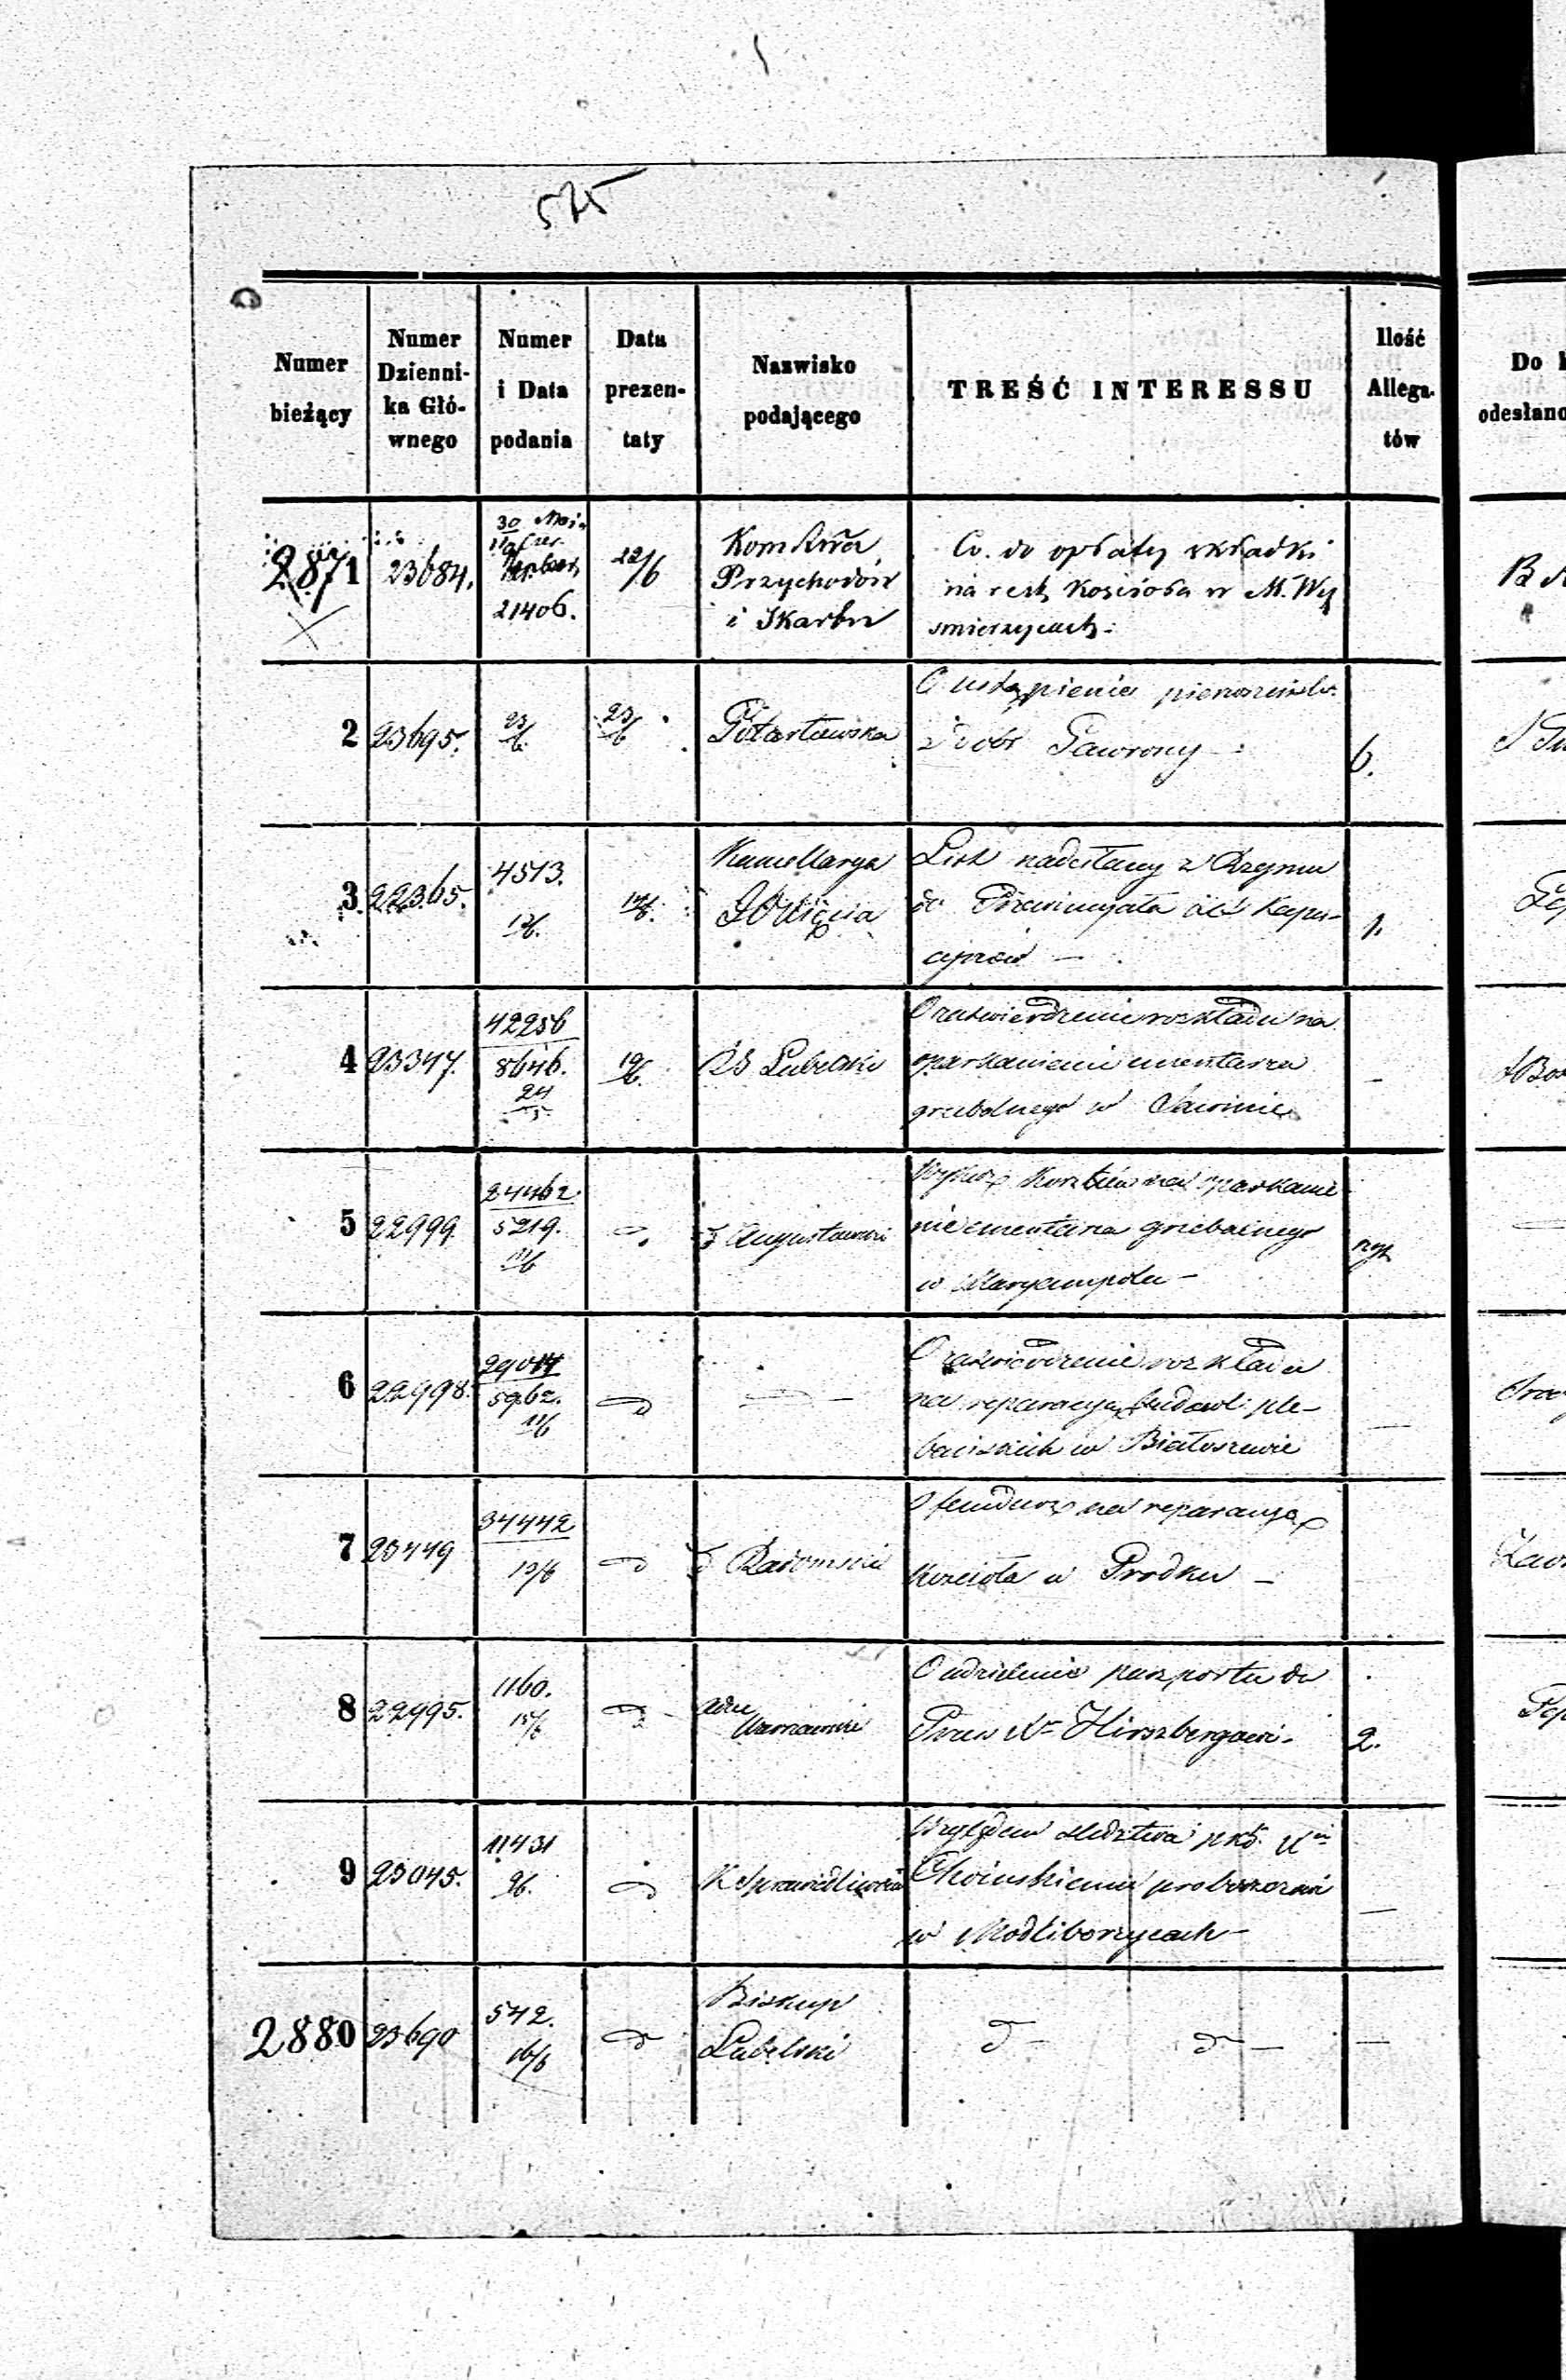 525
Numer bieżący
Numer Dzienni-ka Głó-wnego
Numer i Data podania
Data prezen-taty
Nazwisko podającego
TREŚĆ INTERESSU
Ilość Allega-tów
Do
odesłano
2871
23684.
30 Maja
21406.
22/6
Kom Rwa
Przychodów
i Skarbu
Co do opłaty składki
na rest. Kościoła w M. Wy
smierzycach.
2
23695.
23/6
23/6
O ustąpienie pierwszeństw.
z dobr Gawrony
6.
3
22365.
4513.
12/6.
Kancellarya
JO Xięcia
List nadesłany z Rzymu
do Prowincyała XX Kapu-
cynów —
1.
4
23347.
42256
8646.
24/5
19/6
RG Lubelski
O zatwierdzenie rozkładu na
oparkanienie cmentarza
grzebalnego w Sawinie
-
5
22999.
24462
5219.
11/6
d
d Augustowski
Wykaz kosztów na oparkanie
nie cmentarza grzebalnego
w Maryampolu —
6
22998.
29017
5962.
11/6
d
O zatwierdzenie rozkładu
na reparacyą budowli ple-
bańskich w Białoszewie
—
7
23449
34442
13/6
d
d Radomski
O fundusz na reparacyą
kościoła w Prodku —
8
22995.
1160.
15/6
d
Adm
Warszawski
O udzielenie paszportu do
Prus Xr Hirszbergowi.
2.
9
23045.
11431
9/6.
d
K Sprawiedliwości
Względem śledztwa pko. Xu
proboszczowi
w Modliborzycach —
—
2880
23690
542.
16/6
d
Biskup
Lubelski
d — d —
—